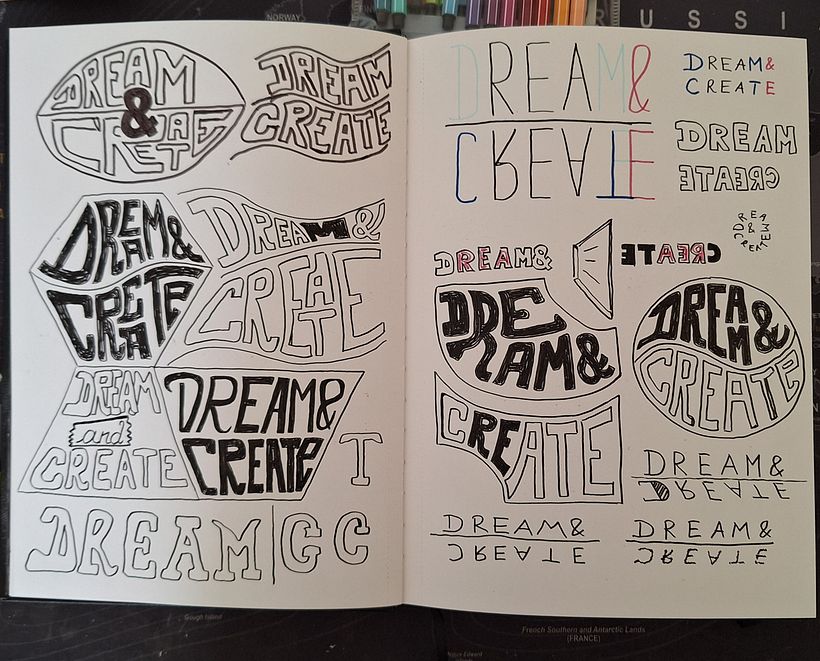 NORWAY
RUSSI
DREAM
&
CREATE
DREAM
CREATE
DREAM&
CREATE
DREAM&
CREATE
DREAM
and
CREATE
DREAM&
CREATE
T
DREAM
G C
DREAM&
CREATE
DREAM&
CREATE
DREAM
CREATE
DREAM&
CREATE
DREAM
&
CREATE
DREAM&
CREATE
DREAM&
CREATE
DREAM&
CREATE
DREAM&
CREATE
DREAM&
CREATE
Gough Island
French Southern and Antarctic Lands
(FRANCE)
Prince Edward